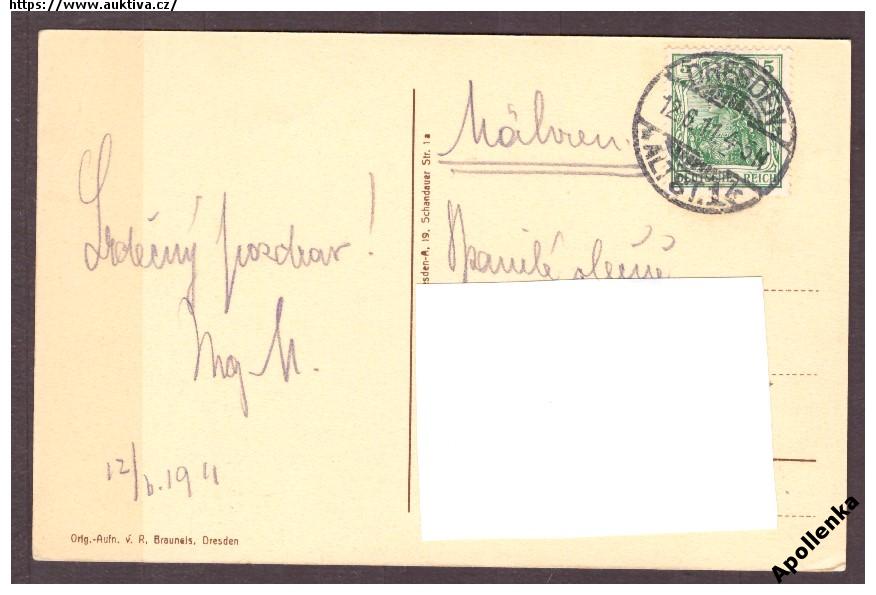 https://www.auktiva.cz/
Srdečný pozdrav!
12/6.1911
Orig.-Aufn. v. R. Brauneis, Dresden
esden-A. 19, Schandauer Str. 1a
Mähren.
Spanilé slečně
5 5
DRESDEN
12.6.11.
ALTST.
DEUTSCHES REICH
Apollenka